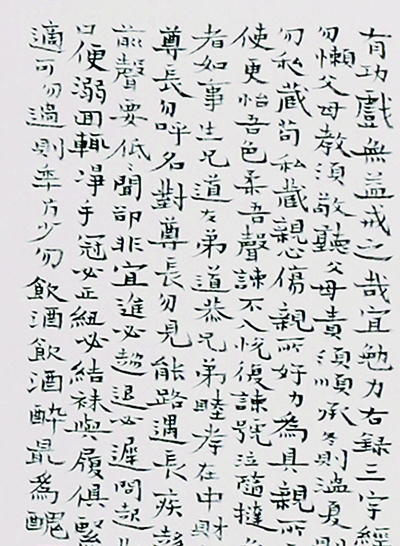 有功戲無益戒之哉宜勉力右錄三字經
勿懶父母教須敬聽父母責須順承冬則溫夏則
勿私藏苟私藏親心傷親所好力為具親所
使更怡吾色柔吾聲諫不入悅復諫號泣隨撻
者如事生兄道友弟道恭兄弟睦孝在中財
尊長勿呼名對尊長勿見能路遇長疾趨
前聲要低聞卻非宜進必趨退必遲問起
口便溺回輒淨手冠必正紐必結襪與履俱緊
適可勿過則年方少勿飲酒飲酒醉最為醜